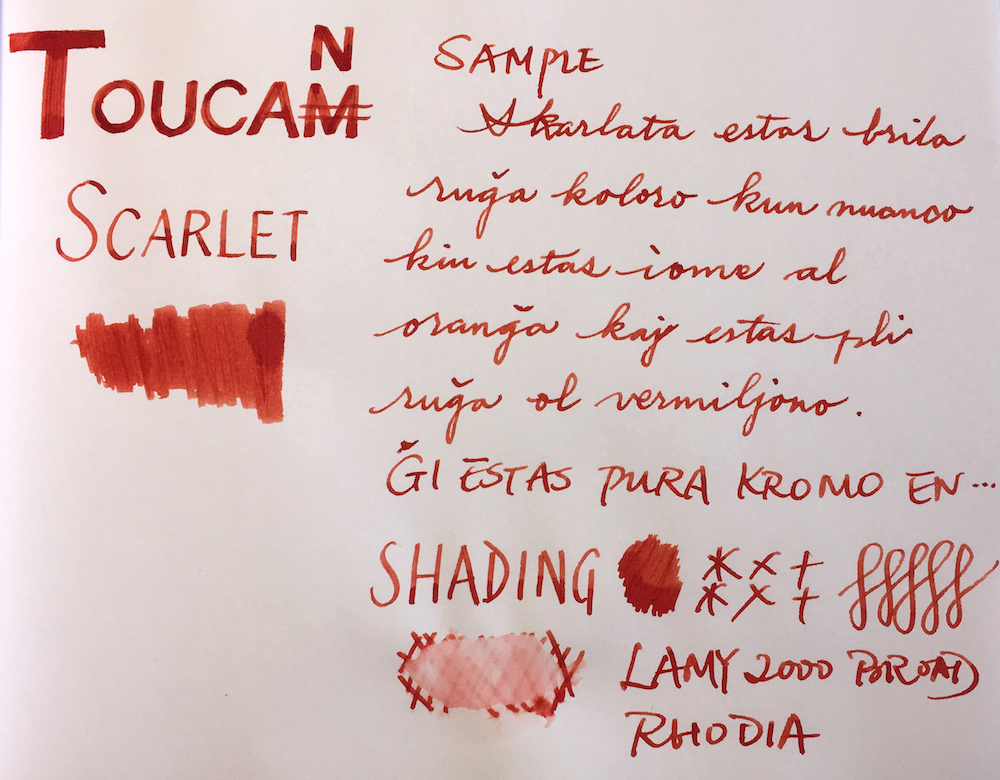 TOUCAN
SCARLET
SAMPLE
Skarlata estas brila
ruğa koloro kun nuanco
kiu estas iome al
oranğa kaj estas pli
ruğa ol vermiljono.
ĞI ESTAS PURA KROMO EN...
SHADING
LAMY 2000 BROAD
RHODIA